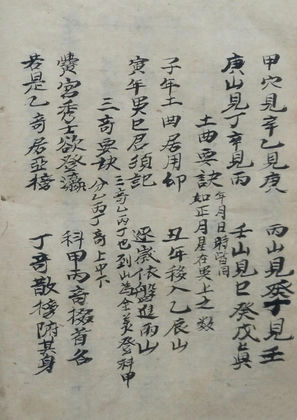 甲穴見辛乙見庚 丙山見癸丁見壬
庚山見丁辛見丙 壬山見巳癸戊真
土曲要訣 年月日時皆同
如正月星在巽上之數
子年土曲居用卯 丑年移入乙辰山
寅年巽巳君須記 逐歲依盤進兩山
三奇要訣 三奇乙丙丁也列山為全美登科甲
分乙丙丁奇上中下
黌宮秀士欲登瀛 科甲丙奇掇首名
若是乙奇居亞榜 丁奇散榜附其身